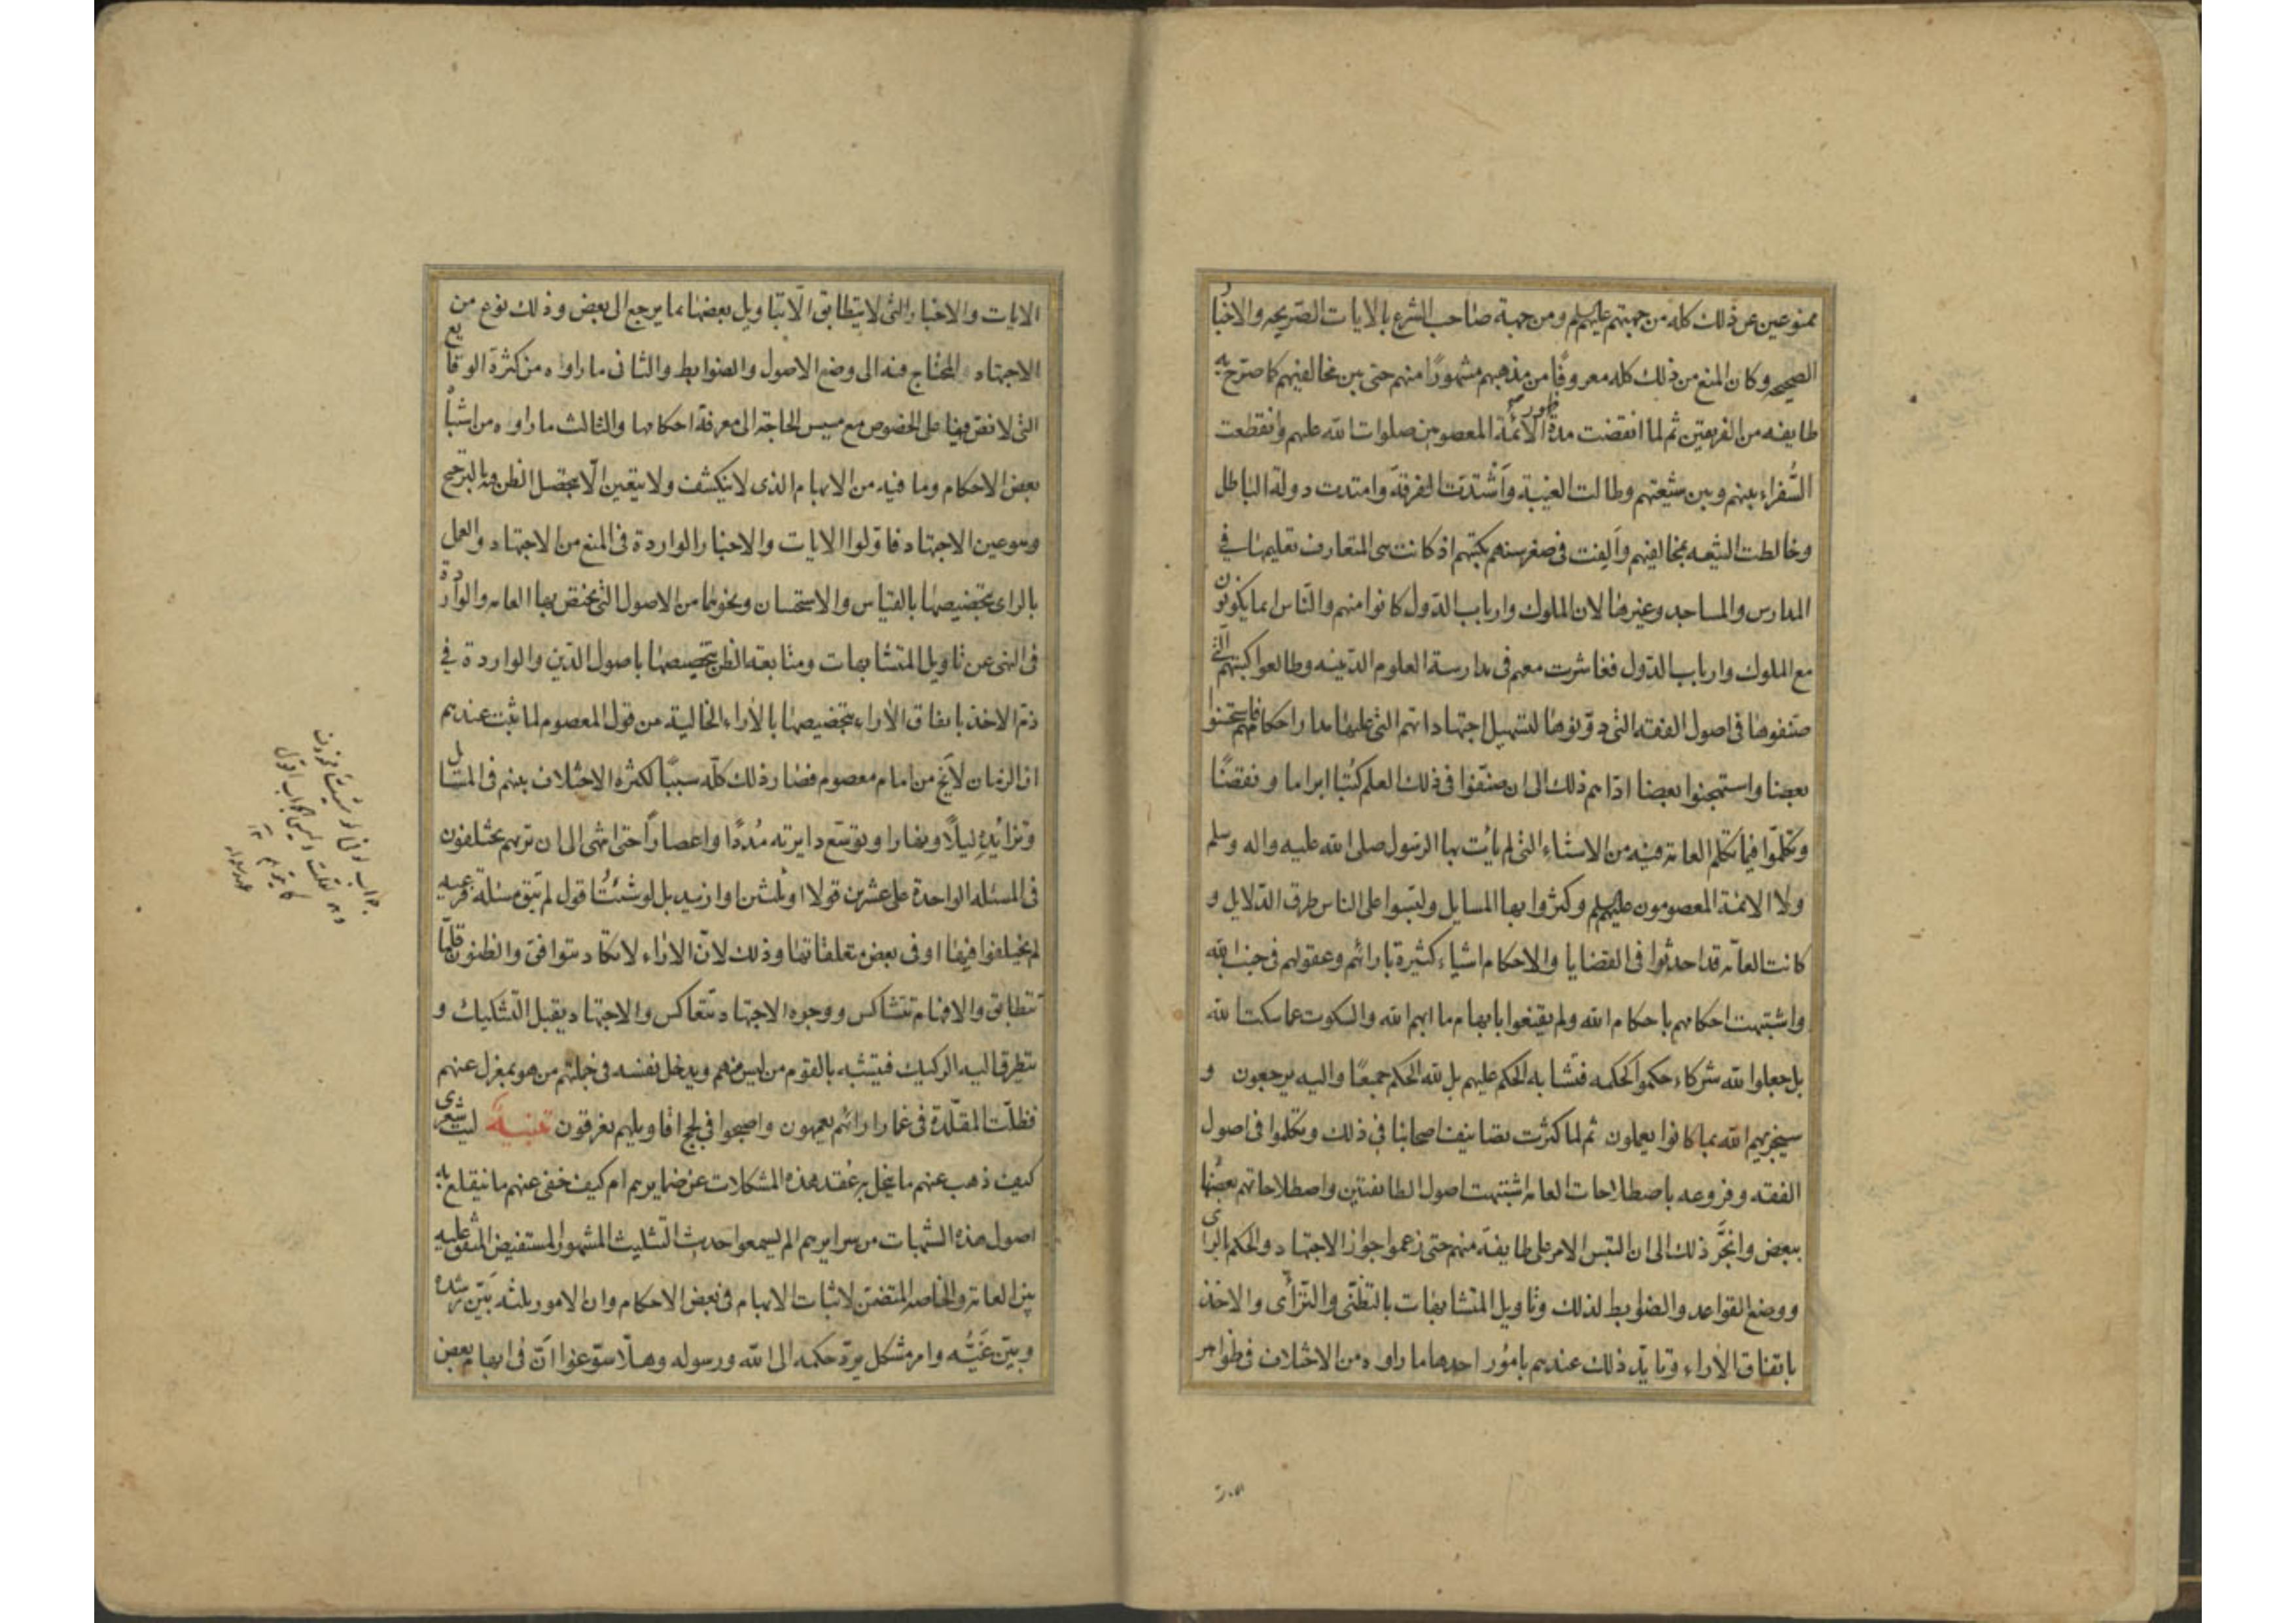 ممنوعين عن ذلك كله من جهتهم عليهم السلم ومن جهة صاحب الشرع بالايات الصريحه والاخبار
الصحيحه وكان المنع من ذلك كله معروفًا من مذهبهم مشهورًا منهم حتى بين مخالفيهم كما صرح به
طايفه من الفريقين ثم لما انقضت مدة ظهور الائمة المعصومين صلوات الله عليهم وانقطعت
السُّفراء بينهم وبين شيعتهم وطالت الغيبة وَاشْتدّت الفرقة وامتدت دولة الباطل
وخالطت الشيعه بمخالفيهم وألفت فى صغر سنهم بكتبهم اذ كانت هى المتعارف تعليمها في
المدارس والمساجد وغيرها لان الملوك وارباب الدّول كانوا منهم والنّاس انما يكونون
مع الملوك وارباب الدّول فعاشرت معهم فى مدارسة العلوم الدّينيه وطالعوا كتبهم الّتى
صنّفوها فى اصول الفقه التى دوّنوها لتسهيل اجتهاداتهم التى عليها مدار احكامهم فاستحسنوا
بعضا واستهجنوا بعضا ادّاهم ذلك الى ان صنّفوا فى ذلك العلم كتُبا ابراما ونقضًا
وتكلّموا فيما تكلم العامة فيه من الاشياء التى لم يأت بها الرسول صلى الله عليه واله وسلم
ولا الائمة المعصومون عليهم السلم وكثروا بها المسايل ولبّسوا على الناس طرق الدّلايل و
كانت العامّة قد احدثوا فى القضايا والاحكام اشياء كثيرة بارائهم وعقولهم فى جنب الله
واشتبهت احكامهم باحكام الله ولم يقنعوا بابهام ما ابهم الله والسكوت عما سكت الله
بل جعلوا لله شركاء حكموا كحكمه فتشابه الحكم عليهم بل لله الحكم جميعًا واليه يرجعون و
سيجزيهم الله بما كانوا يعملون ثم لما كثرت تصانيف اصحابنا في ذلك وتكلموا فى اصول
الفقه وفروعه باصطلاحات العامه اشتبهت اصول الطايفتين واصطلاحاتهم بعضُها
ببعض وانجَرَّ ذلك الى ان التبس الامر على طايفة منهم حتى زعموا جواز الاجتهاد والحكم بالراى
ووضع القواعد والضوابط لذلك وتاويل المتشابهات بالتظنّى والترّأى والاخذ
باتفاق الاراء وتايّد ذلك عندهم بامُور احدها ما راوه من الاختلاف فى ظواهر
الايات والاخبار التى لا يتطابق الّا بتاويل بعضها بما يرجع الى بعض وذلك نوع من
الاجتهاد المحتاج فيه الى وضع الاصول والضوابط والثانى ما راوا من كثرة الوقايع
التى لا نصّ فيها على الخصوص مع مسيس الحاجة الى معرفة احكامها والثالث ما راوه من اشتباه
بعض الاحكام وما فيه من الابهام الذى لا ينكشف ولا يتعين الّا بتحصيل الظن فيه بالترجيح
وهو عين الاجتهاد فاوّلوا الايات والاخبار الواردة فى المنع من الاجتهاد والعمل
بالراى بتخصيصها بالقياس والاستحسان ونحوهما من الاصول التى يختص بها العامه والواردة
فى النهى عن تاويل المتشابهات ومتابعة الظن بتخصيصها باصول الدّين والواردة في
ذمّ الاخذ باتفاق الأراء بتخصيصها بالأراء الخالية من قول المعصوم لما ثبت عندهم
ان الزمان لا يَخ من امام معصوم فصار ذلك كلّه سببًا لكثره الاختلاف بينهم فى المسائل
وتزائدِه ليلًا ونهارا وتوسّع دايرته مُددًا واعصارًا حتى انتهى الى ان تريهم يختلفون
فى المسئله الواحدة على عشرين قولا او ثلثين او ازيد بل لو شئتُ اقول لم تبق مسئلة فرعيه
لم يختلفوا فيها او فى بعض متعلقاتها وذلك لانّ الاراء لا تكاد تتوافق والظنون قلّما
تتطابق والافهام تتشاكس ووجوه الاجتهاد تتعاكس والاجتهاد يقبل التّشكيك و
يتطرق اليه الركيك فيتشبه بالقوم من ليس منهم ويدخل نفسه فى جملتهم من هو بمعزل عنهم
فظلّت المقلّدة فى غمار ارائهم يعمهون واصبحوا في لجج اقاويلهم يغرقون تنبيه ليت شعرى
كيف ذهب عنهم ما ينحل به عُقد هذه المشكلات عن ضمايرهم ام كيف خفى عنهم ما ينقلع به
اصول هذه الشبهات من سرايرهم الم يسمعوا حديث التّثليث المشهور المستفيض المتّفق عليه
بين العامة والخاصه المتضمن لاثبات الابهام فى بعض الاحكام وان الامور ثلثه بَيّن رشده
وبيّن غَيُّه وامر مشكل يردّ حكمه الى الله ورسوله وهلّا سوّغوا انّ فى ابهام بعض